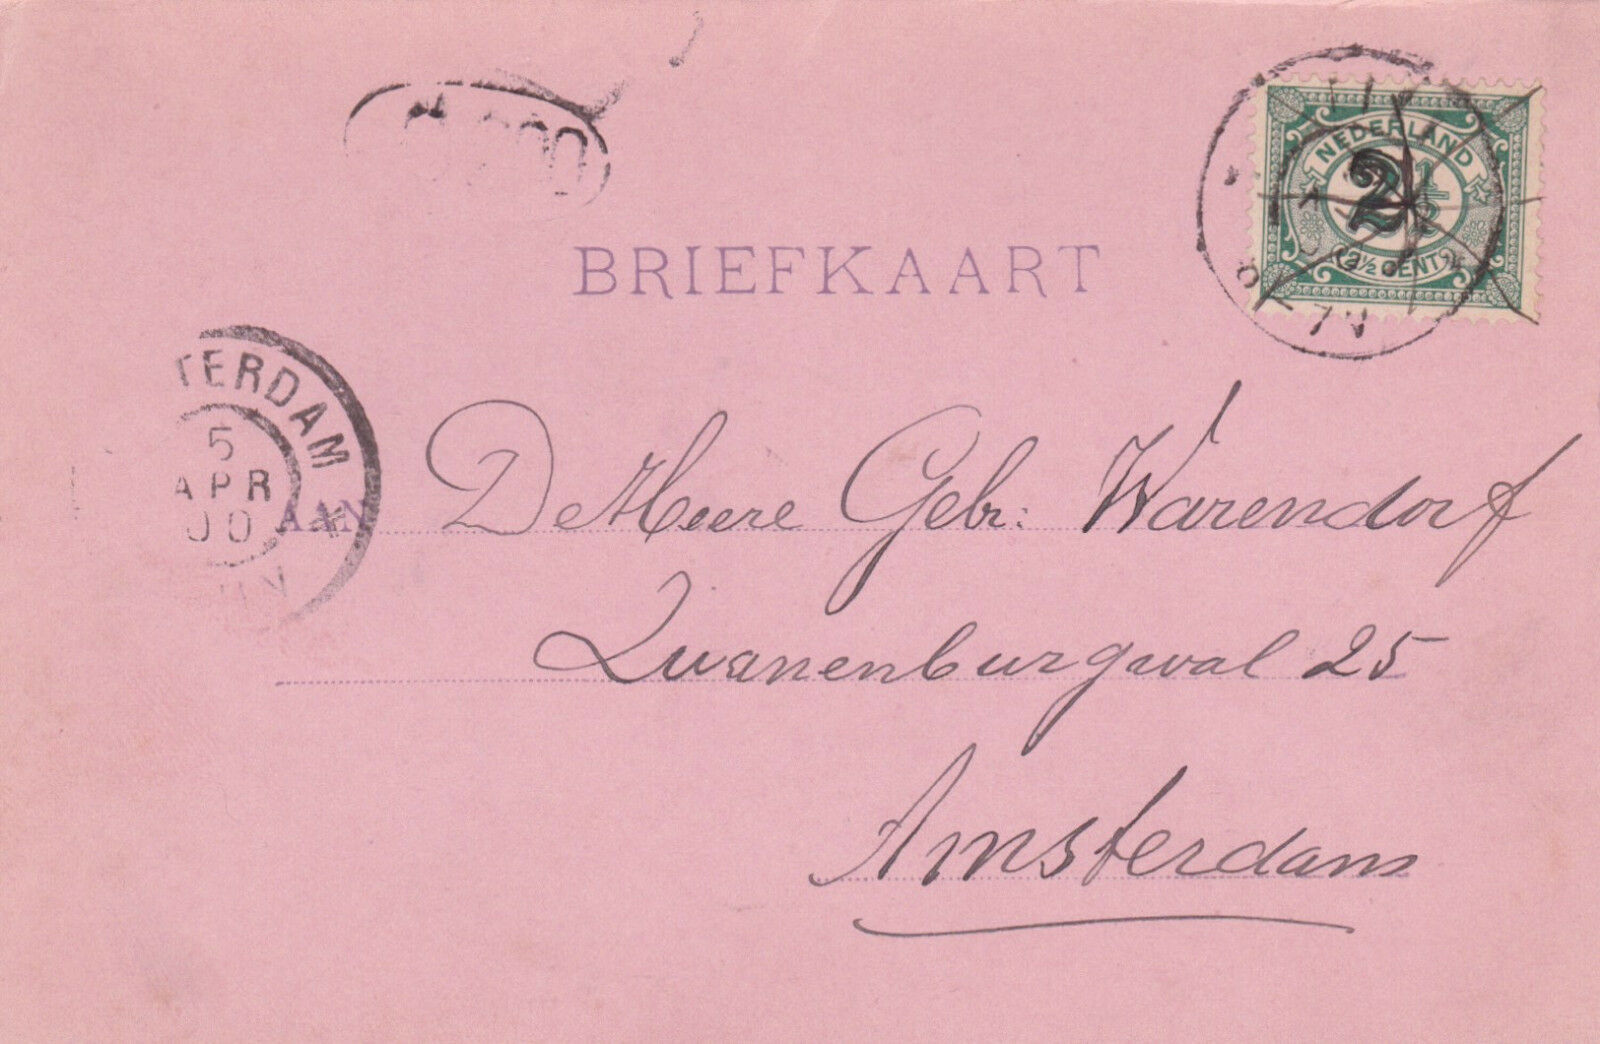 NEDERLAND
2½
(2½ CENT)
BRIEFKAART
TERDAM
5
APR
00
AAN De Heere Gebr: Warendorf
Zwanenburgwal 25
Amsterdam